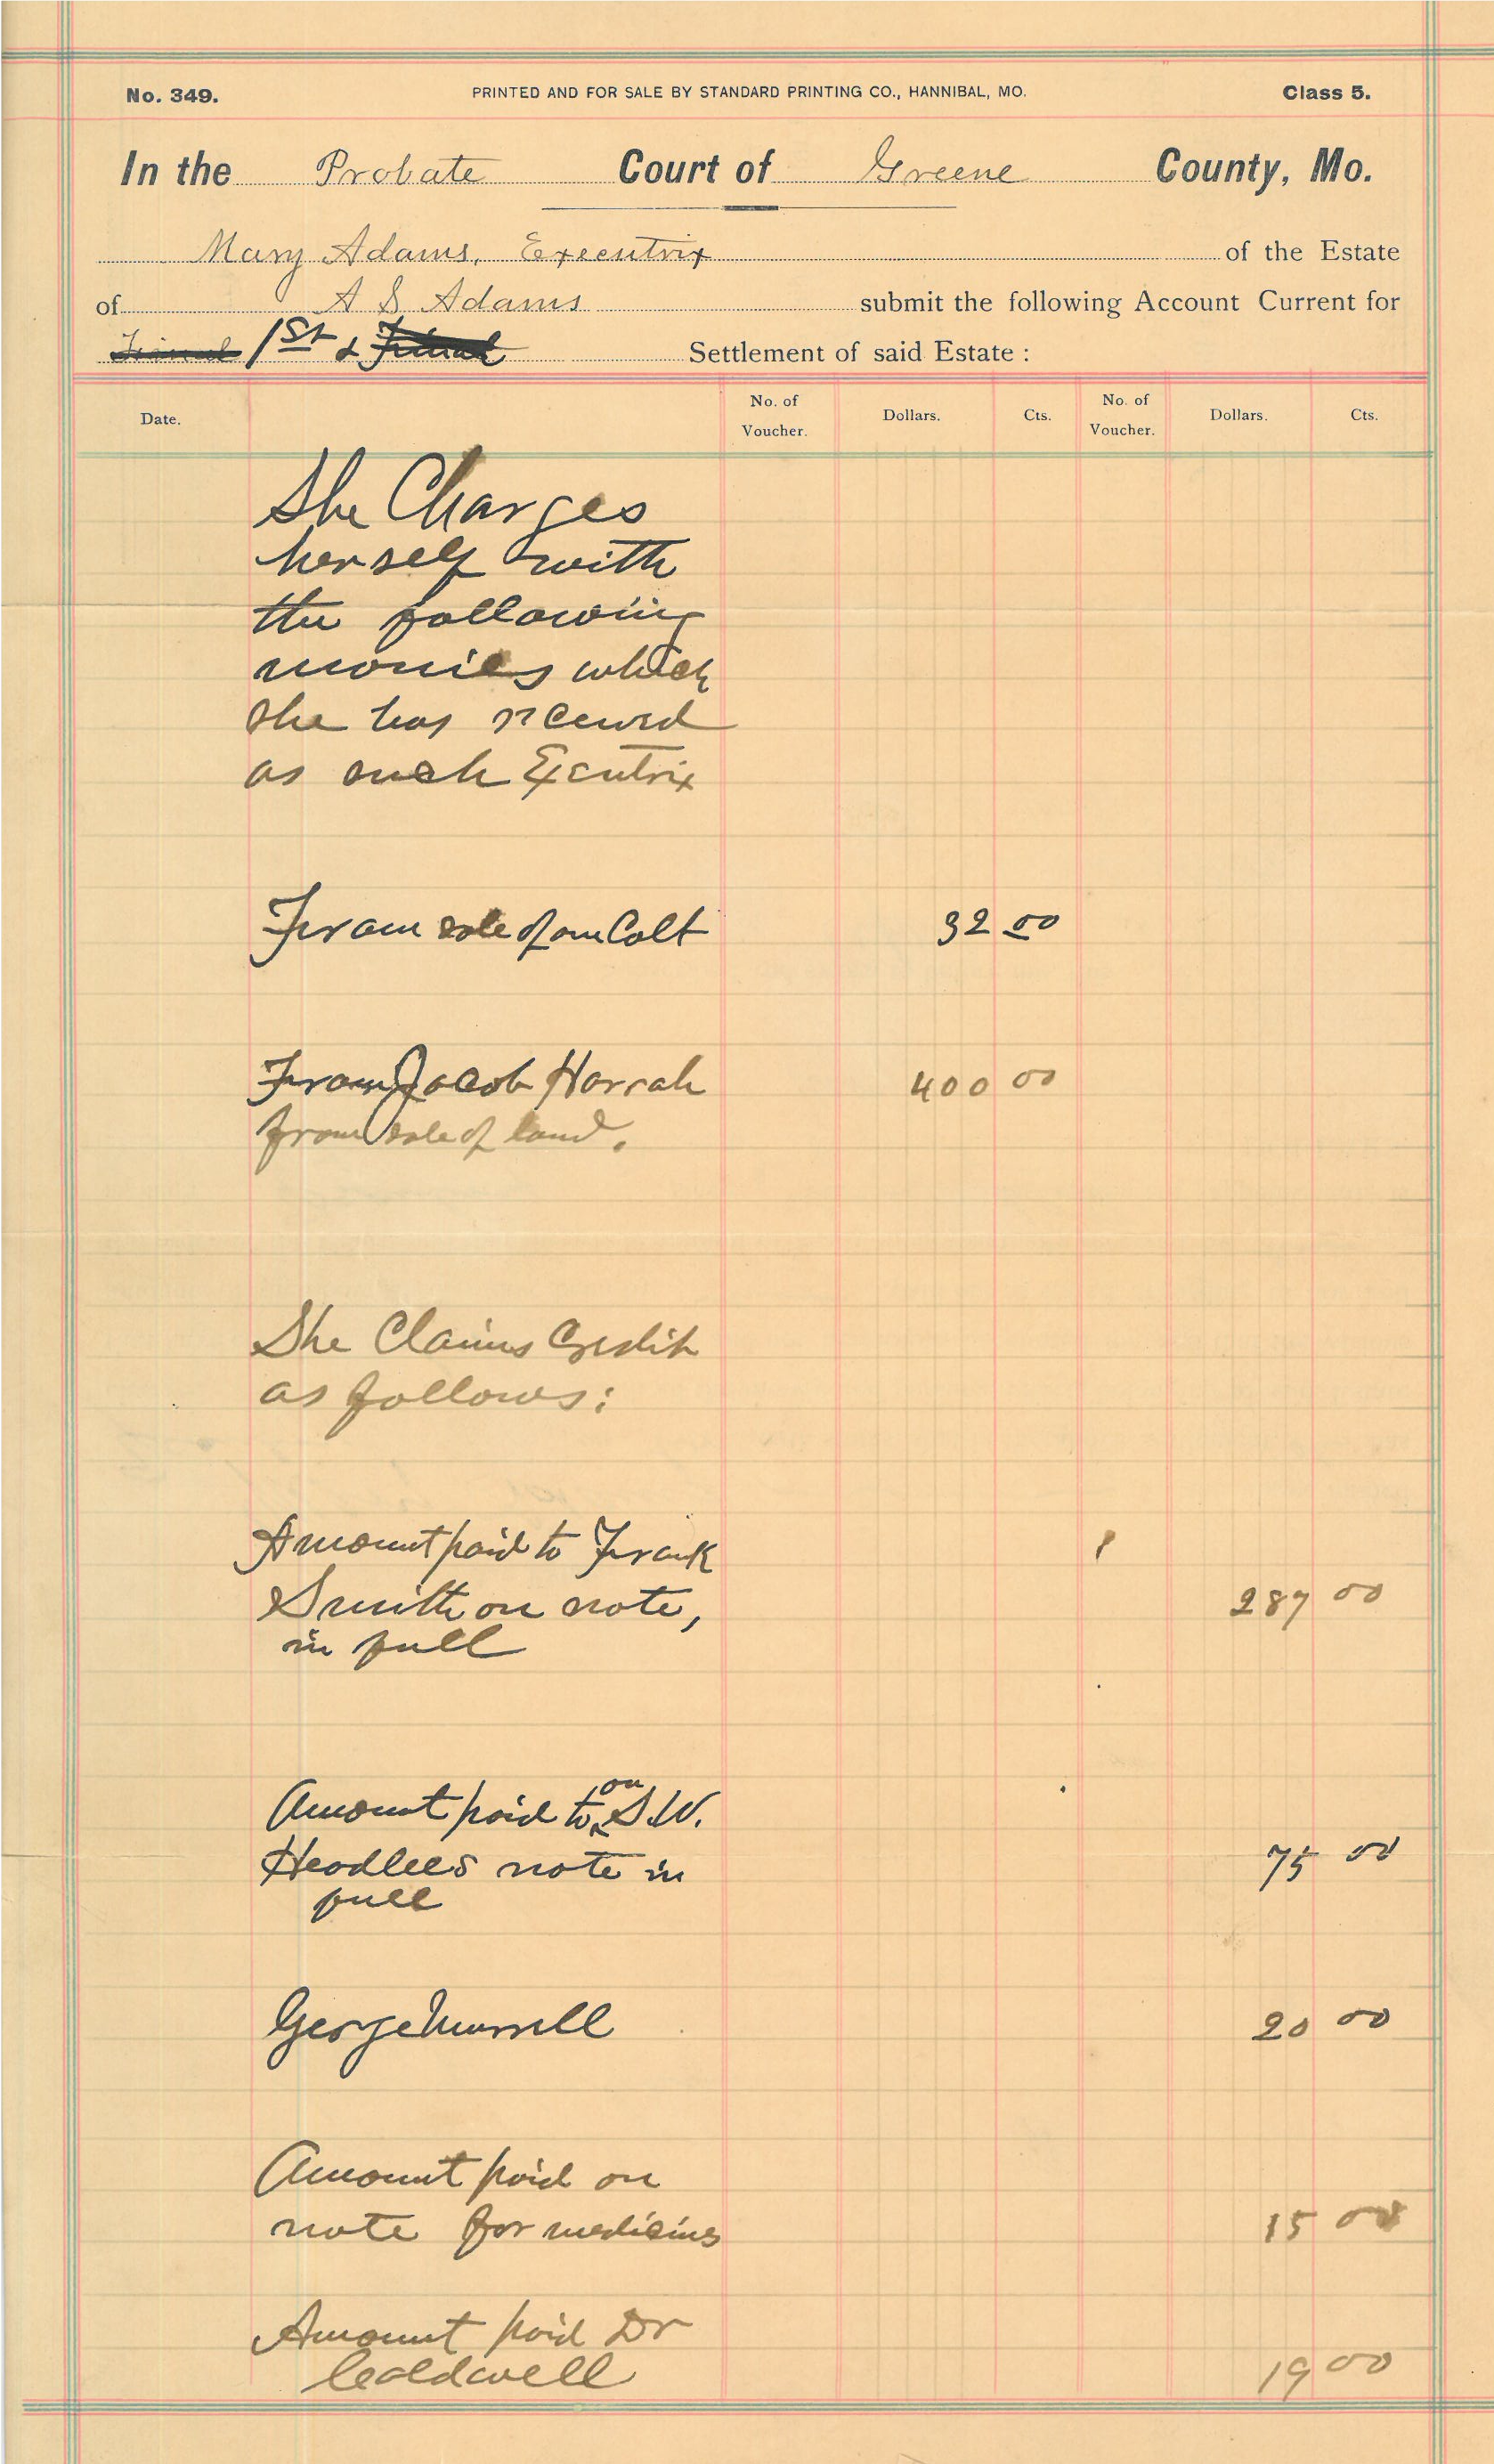 No. 349. PRINTED AND FOR SALE BY STANDARD PRINTING CO., HANNIBAL, MO. Class 5.
In the Probate Court of Greene County, Mo.
Mary Adams, Executrix of the Estate
of A S Adams submit the following Account Current for
Final 1st & Final Settlement of said Estate :
Date. No. of Voucher. Dollars. Cts. No. of Voucher. Dollars. Cts.
She Charges
herself with
the following
monies which
she has received
as such Exutrix
From sale of one Colt 32 00
From Jacob Harrah 400 00
from sale of land.
She Claims Credit
as follows:
Amount paid to Frank 1
Smith on note, 287 00
in full
Amount paid to on S.W.
Headlees note in 75 00
full
George Murrell 20 00
Amount paid on
note for medicins 15 00
Amount paid Dr
Caldwell 19 00